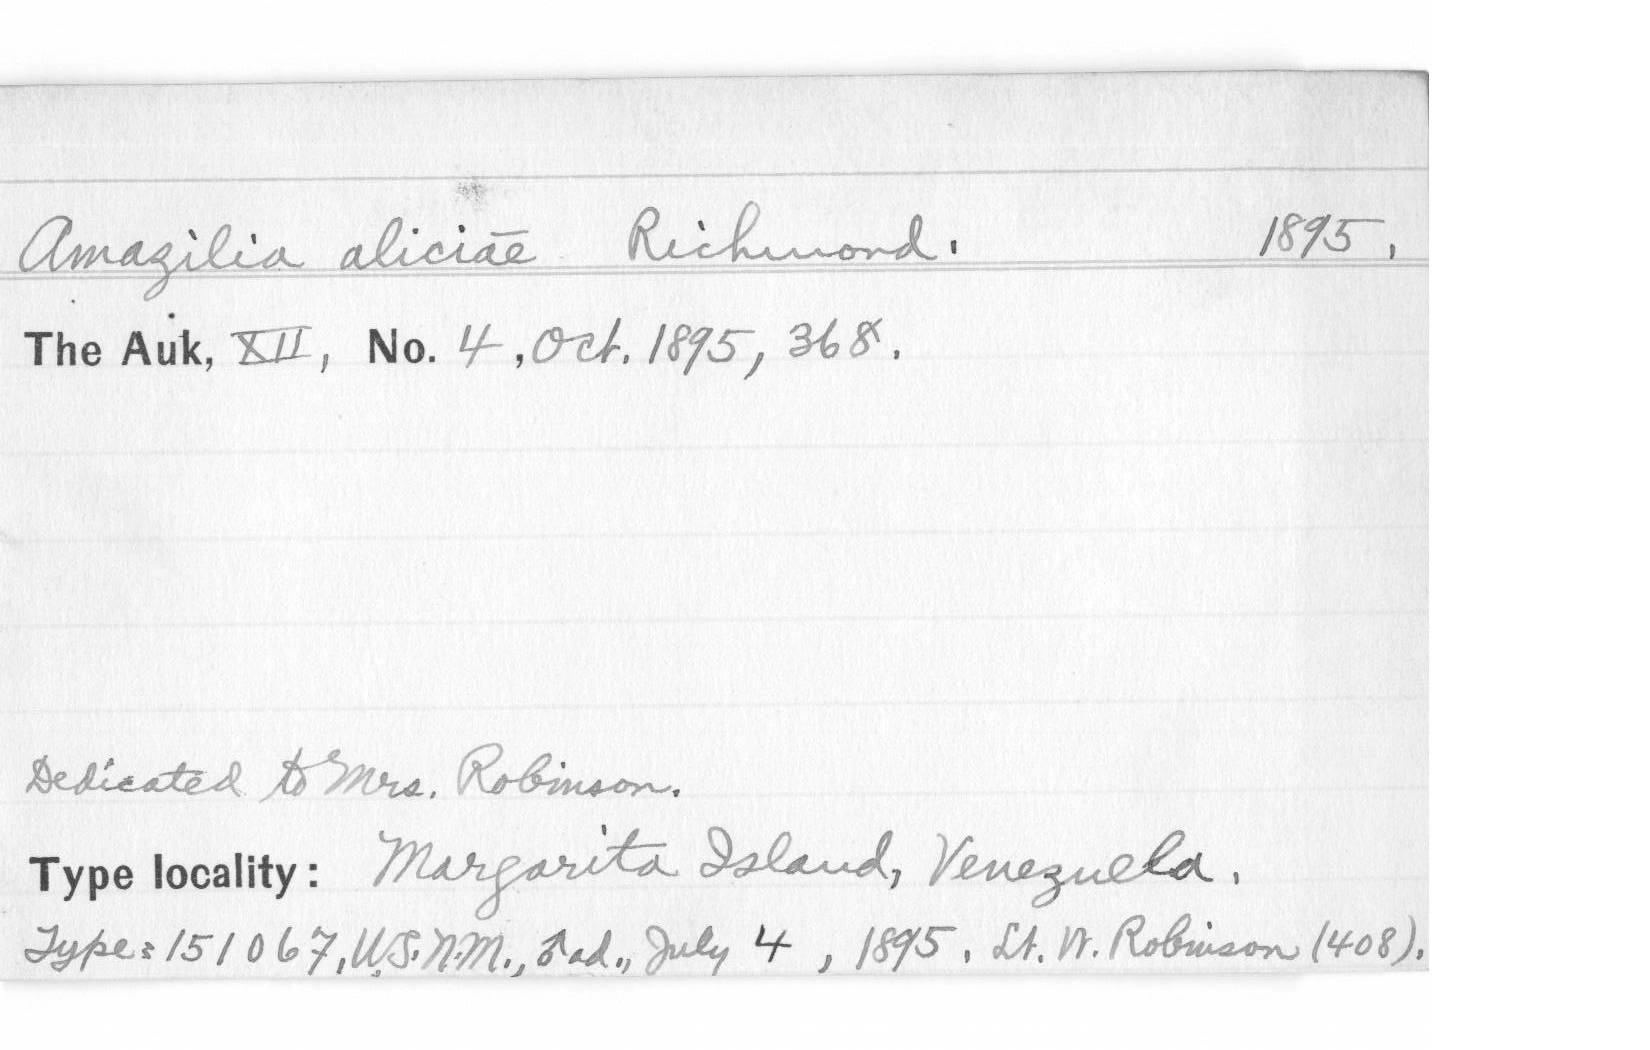 Amazilia aliciae Richmond. 1895.
The Auk, XII, No. 4, Oct. 1895, 368.
Dedicated to Mrs. Robinson.
Type locality: Margarita Island, Venezuela.
Type: 151067, U.S.N.M., ♂ ad., July 4, 1895. Lt. W. Robinson (408).